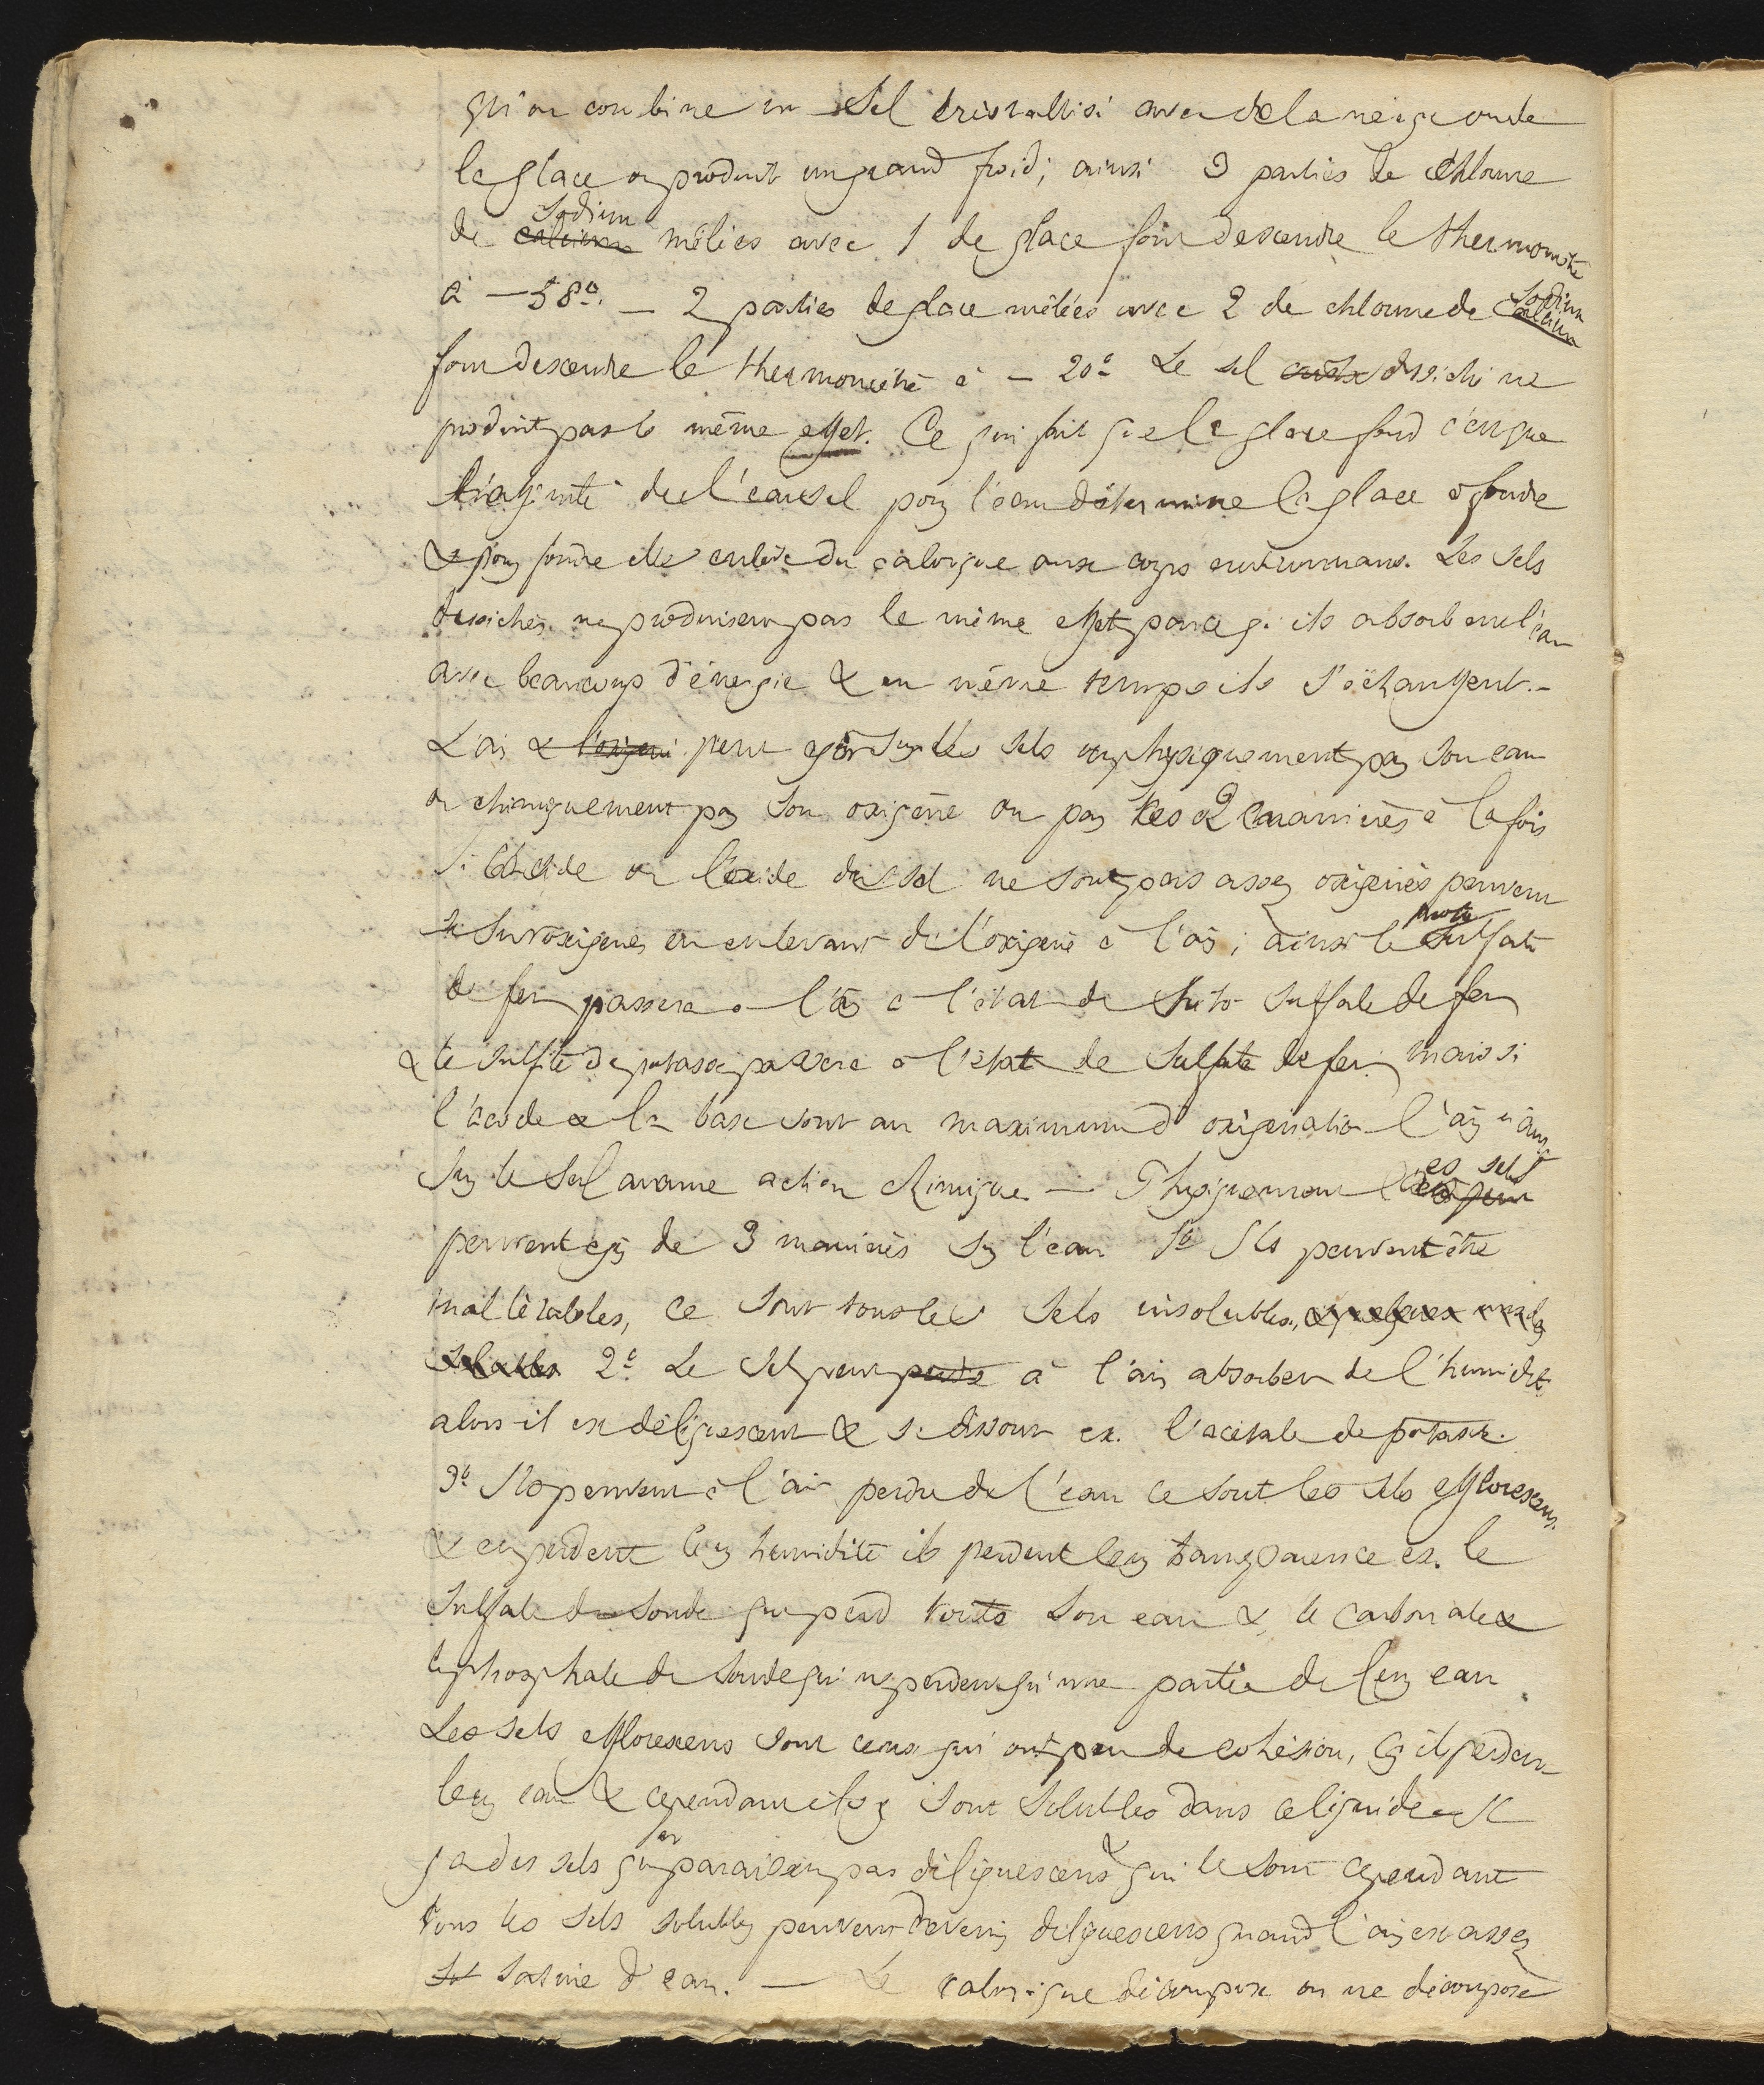 qu'on combine un sel cristallisé avec de la neige ou de
la glace on produit un grand froid; ainsi 3 parties de chlorure
de calcium sodium mêlées avec 1 de glace font descendre le thermomètre
à -58°. — 2 parties de glace mêlées avec 2 de chlorure de calcium sodium
font descendre le thermomètre à - 20° Le sel desséché ne
produit pas le même effet. Ce qui fait que la glace fond c'est que
l'affinité de l'eau sel pour l'eau détermine la glace à fondre
& pour fondre elle enlève du calorique aux corps environnans. Les sels
desséchés ne produisent pas le même effet parce q. ils absorbent l'eau
avec beaucoup d'énergie & en même temps ils s'échauffent. -
L'air & l'oxigène peut agir sur les sels ou physiquement par son eau
ou chimiquement par son oxigène ou par les 2 manières à la fois
Si l'acide ou l'oxide du sel ne sont pas assez oxigénés peuvent
se suroxigéner en enlevant de l'oxigène à l'air; ainsi le proto sulfate
de fer passera à l'air à l'état de trito sulfate de fer
& le sulfite de potasse passera à l'état de sulfate de fer mais si
l'acide & la base sont au maximum d'oxigénation l'air n'aura
sur le sel aucune action chimique — Physiquement les sels
peuvent agir de 3 manières sur l'eau 1° Ils peuvent être
inaltérables, ce sont tous les sels insolubles, & quelques uns des
solubles 2° Le sel peut perdre à l'air absorber de l'humidité
alors il est déliquescent & se dissout ex. l'acétate de potasse.
3° Ils peuvent à l'air perdre de l'eau ce sont les sels efflorescens.
& en perdent leur humidité ils perdent leur transparence ex. le
sulfate de soude qui perd toute son eau & le carbonate &
le phosphate de soude qui ne perdent qu'une partie de leur eau
Les sels efflorescens sont ceux qui ont peu de cohésion, car ils perdent
leur eau & cependant ils y sont solubles dans ce liquide. Il
y a des sels qui ne paraissent pas déliquescens & qui le sont cependant
tous les sels solubles peuvent devenir déliquescens quand l'air est assez
sat saturé d'eau. — Le calorique décompose ou ne décompose